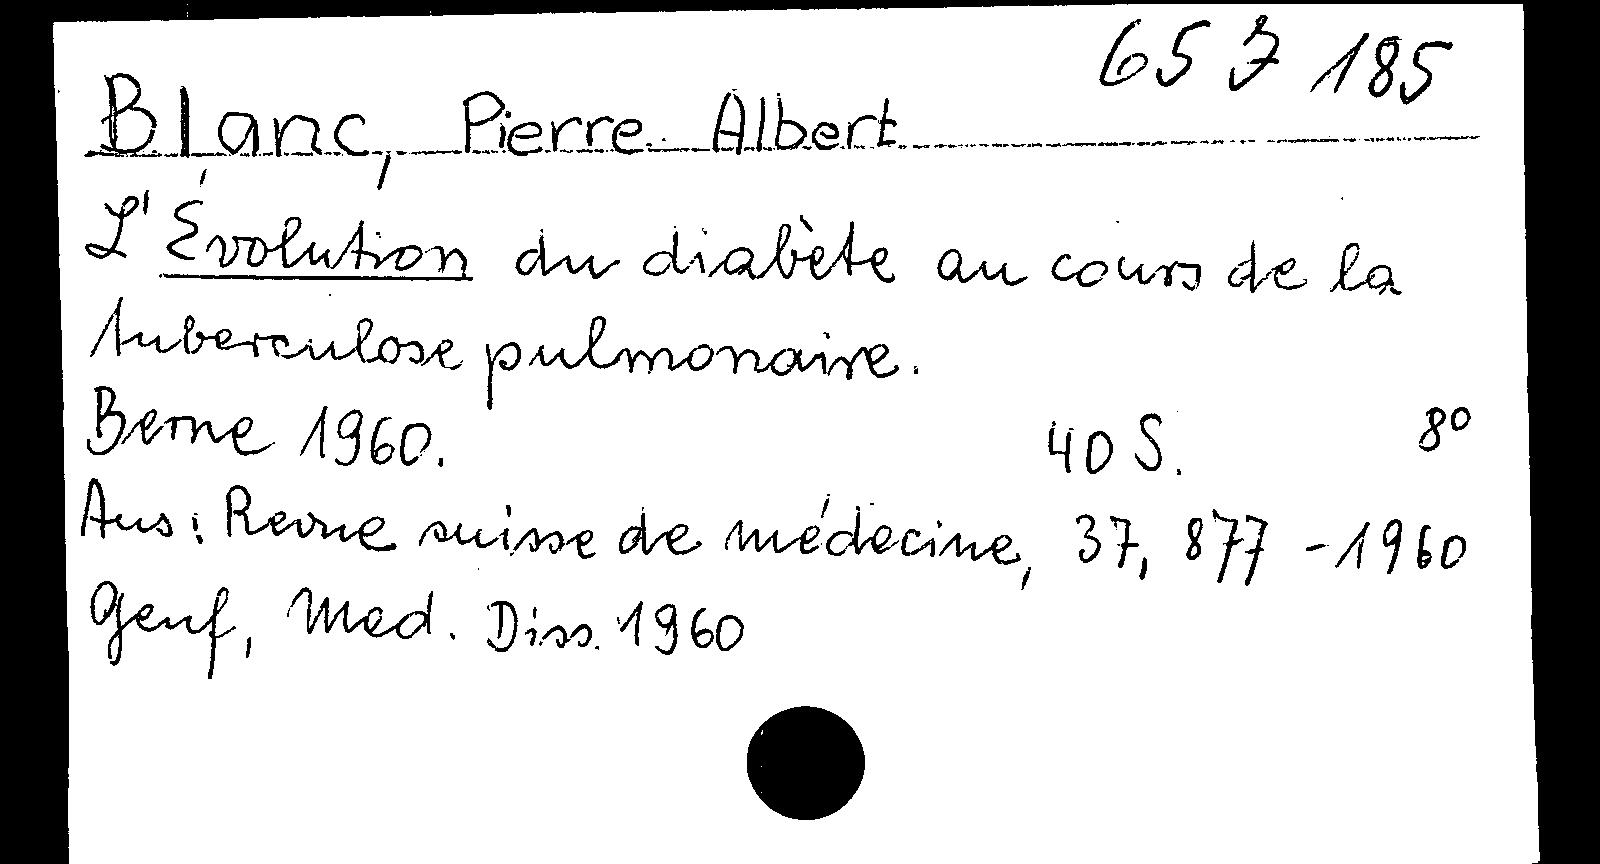 65 7 185
Blanc, Pierre Albert
L'Évolution du diabète au cours de la
tuberculose pulmonaire.
Berne 1960. 40 S. 8°
Aus: Revue suisse de médecine, 37, 877 - 1960
Genf, Med. Diss. 1960